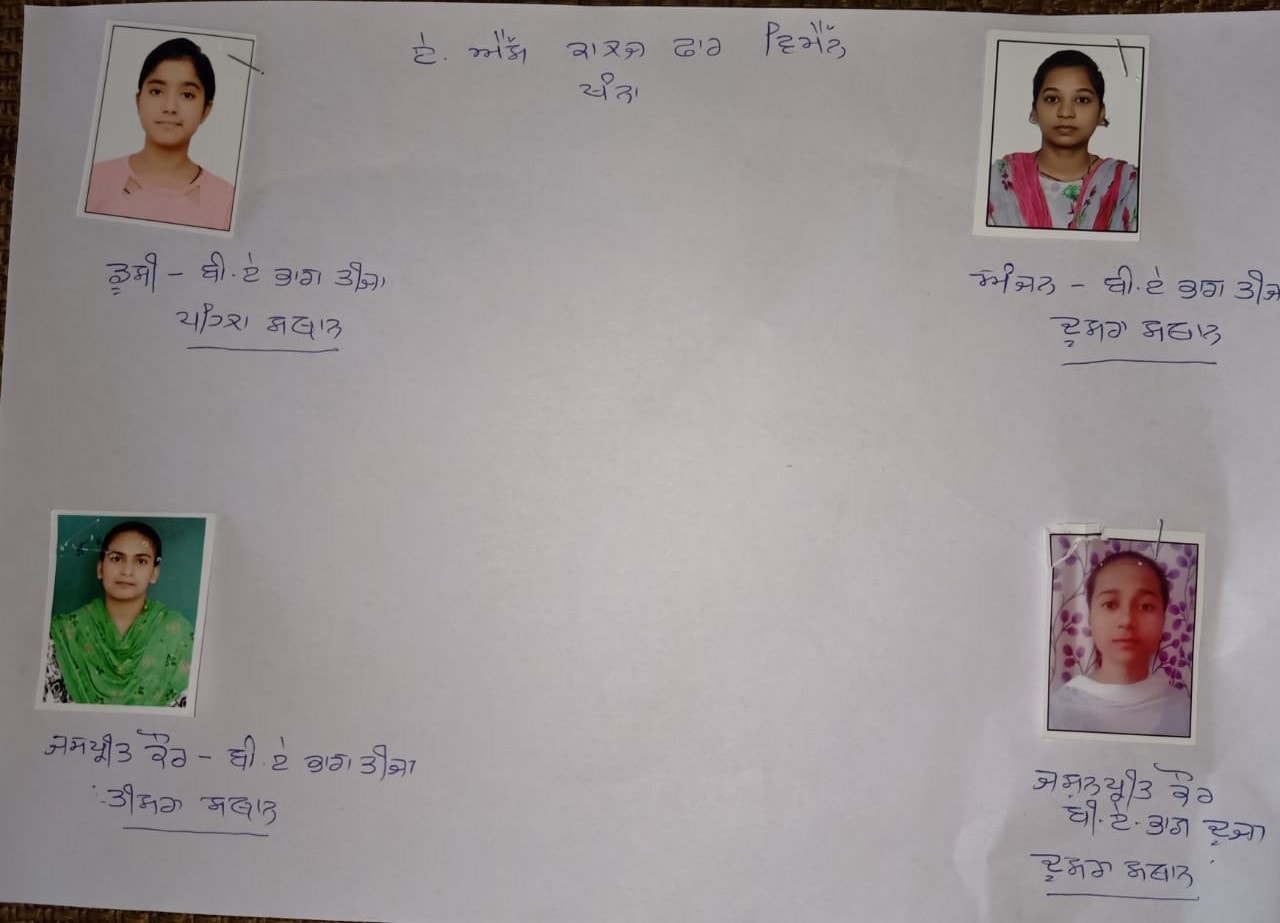 ਏ. ਐੱਸ ਕਾਲਜ ਫਾਰ ਵਿਮੈੱਨ
ਖੰਨਾ
ਰੂਸੀ - ਬੀ.ਏ ਭਾਗ ਤੀਜਾ
ਪਹਿਲਾ ਸਥਾਨ
ਅੰਜਨ - ਬੀ.ਏ ਭਾਗ ਤੀਜਾ
ਦੂਸਰਾ ਸਥਾਨ
ਜਸਪ੍ਰੀਤ ਕੌਰ - ਬੀ.ਏ ਭਾਗ ਤੀਜਾ
ਤੀਸਰਾ ਸਥਾਨ
ਜਸ਼ਨਪ੍ਰੀਤ ਕੌਰ
ਬੀ.ਏ. ਭਾਗ ਦੂਜਾ
ਦੂਸਰਾ ਸਥਾਨ